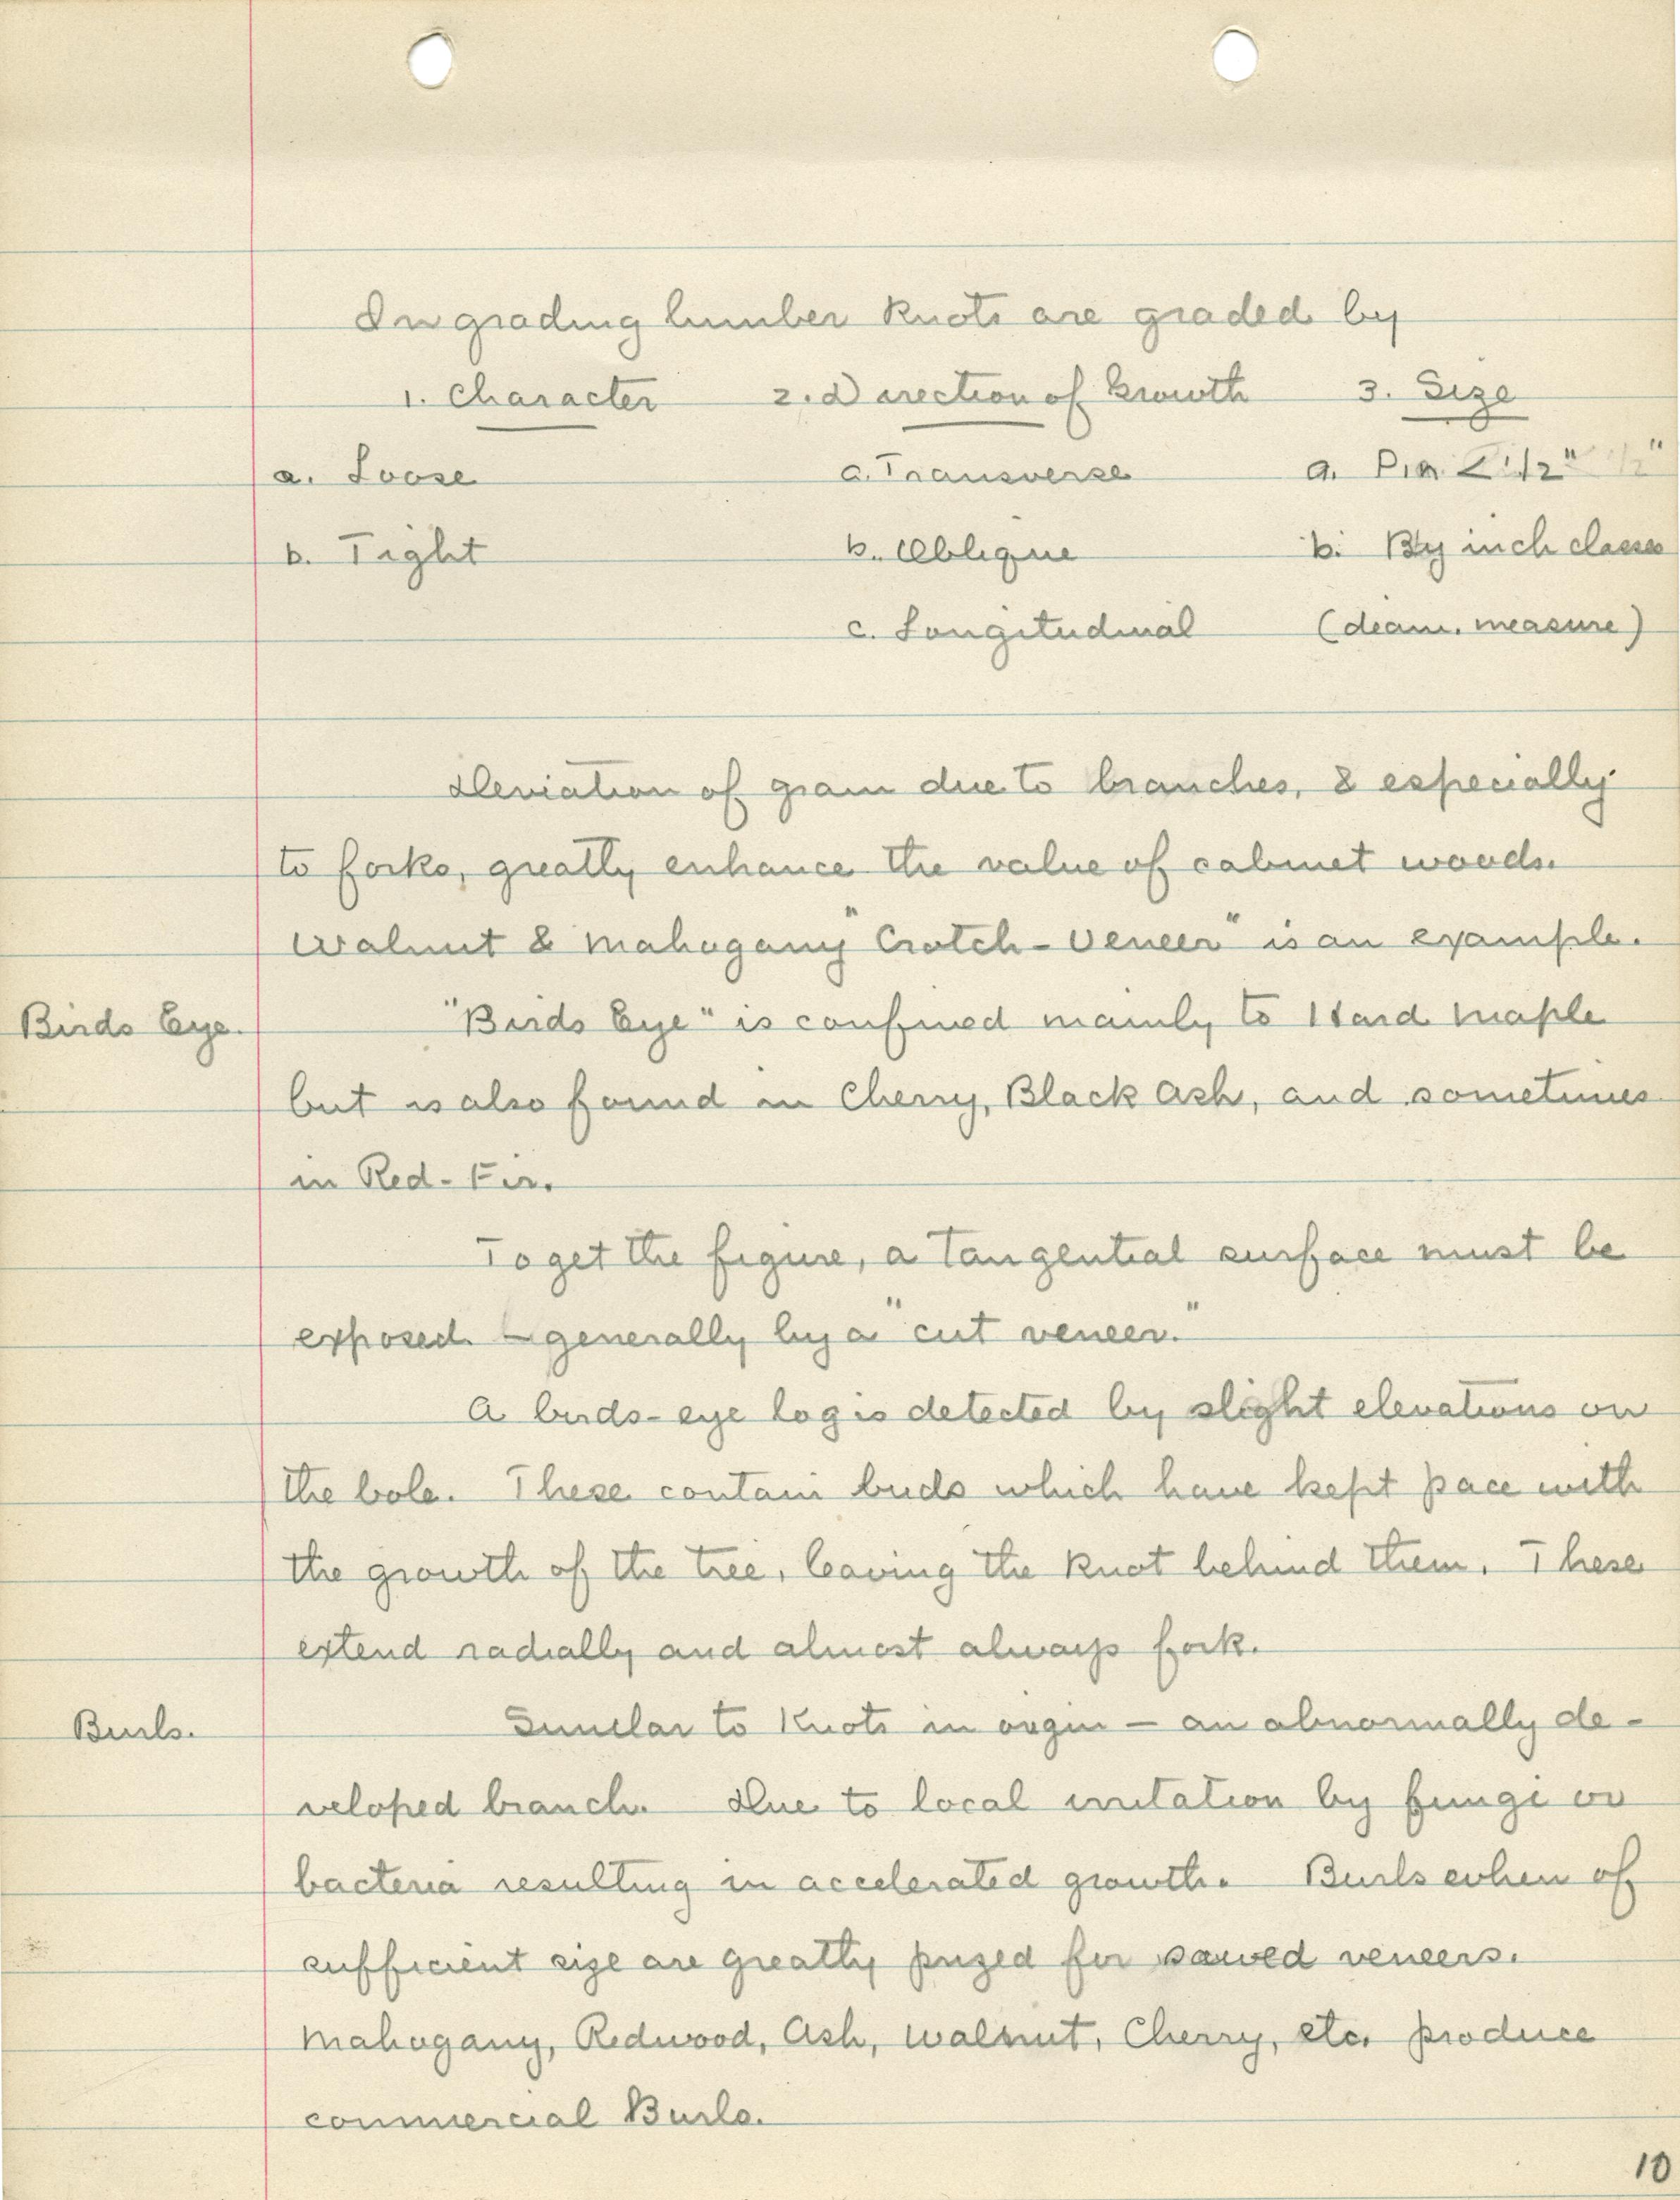 In grading lumber knots are graded by
1. Character 2. Direction of Growth 3. Size
a. Loose a. Transverse a. Pin < 1/2"
b. Tight b. Oblique b. By inch classes
c. Longitudinal (deam. measure)
Deviation of grain due to branches, & especially
to forks, greatly enhance the value of cabinet woods.
Walnut & Mahogany "Crotch-Veneer" is an example.
Birds Eye. "Birds Eye" is confined mainly to Hard Maple
but is also found in Cherry, Black Ash, and sometimes
in Red-Fir.
To get the figure, a tangential surface must be
exposed - generally by a "cut veneer."
A birds-eye log is detected by slight elevations on
the bole. These contain buds which have kept pace with
the growth of the tree, leaving the knot behind them. These
extend radially and almost always fork.
Burls. Similar to knots in origin — an abnormally de-
veloped branch. Due to local irritation by fungi or
bacteria resulting in accelerated growth. Burls when of
sufficient size are greatly prized for sawed veneers.
Mahogany, Redwood, Ash, Walnut, Cherry, etc. produce
commercial Burls.
10